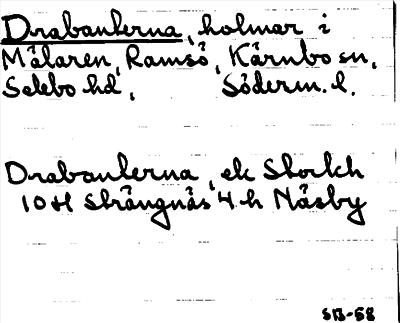 Drabanterna, holmar i
Mälaren, Ramsö, Kärnbo sn,
Selebo hd, Söderm. l.
Drabanterna, ek Storlek
10H Strängnäs 4h Näsby
SB-58